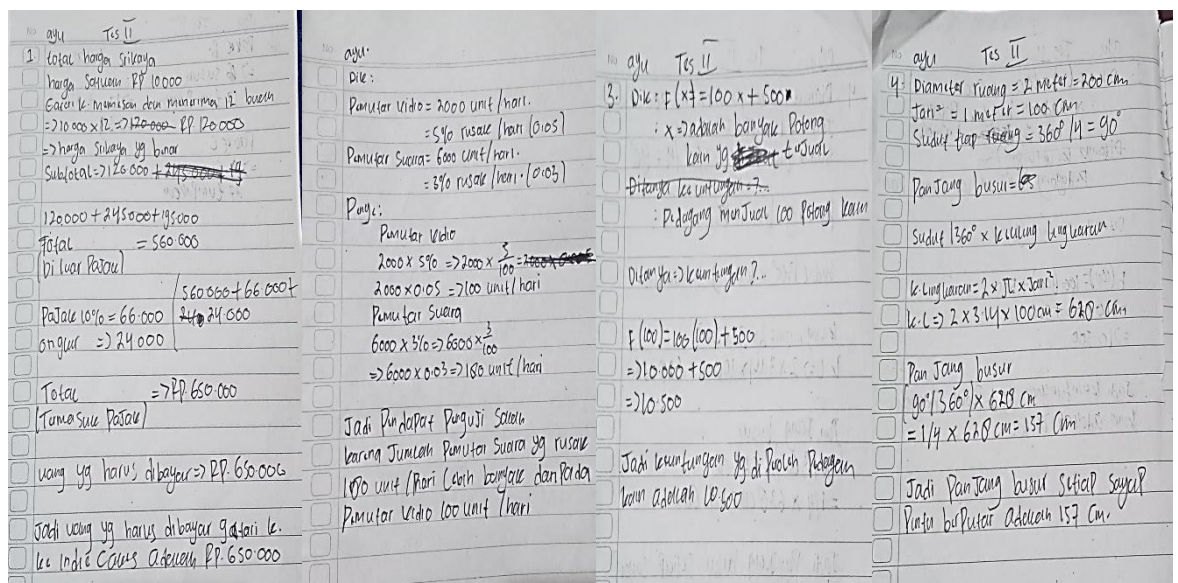 ayu Tes II
1 total harga Srikaya
harga Satuan RP 10000
Gatari k. memesan dan menerima 12 buah
=>10 000 x 12 => 120.000 RP 120 000
=> harga Srikaya yg benar
Subtotal =>120 000 +
120000 + 245000 + 195000
Total = 560.000
(Di luar Pajak)
Pajak 10% = 66.000
ongkir => 24000
560 000 + 66 000 +
24.000
Total => RP. 650.000
(Termasuk Pajak)
uang yg harus dibayar => RP. 650.000
Jadi uang yg harus dibayar gatari k.
ke Indie Caves adalah RP. 650.000
ayu.
Dik:
Pemutar Vidio = 2000 unit/hari.
= 5% rusak/hari (0.05)
Pemutar Suara = 6000 unit/hari.
= 3% rusak/hari. (0.03)
Peny:
Pemutar Vidio
2000 x 5% => 2000 x 5/100 =
2000 x 0.05 => 100 unit/hari
Pemutar Suara
6000 x 3% => 6000 x 3/100
=> 6000 x 0.03 => 180 unit/hari
Jadi Pendapat Penguji Salah
karena Jumlah Pemutar Suara yg rusak
180 unit/hari lebih banyak dari Pada
Pemutar Vidio 100 unit/hari
ayu Tes II
3. Dik: F(x) = 100x + 500
: x => adalah banyak Potong
kain yg terJual
Ditanya keuntungan = ?...
: Pedagang menJual 100 Potong kain
Ditanya => keuntungan ?...
F(100) = 100(100) + 500
=> 10.000 + 500
=> 10.500
Jadi keuntungan yg di Peroleh Pedagang
kain adalah 10.500
ayu Tes II
4. Diameter ruang = 2 meter = 200 cm
Jari² = 1 meter = 100 cm
Sudut tiap ruang = 360°/4 = 90°
PanJang busur =
Sudut/360° x keliling lingkaran
k. lingkaran = 2 x π x Jari²
k.L => 2 x 3.14 x 100 cm = 628 cm
PanJang busur
(90°/360°) x 628 cm
= 1/4 x 628 cm = 157 cm
Jadi PanJang busur Setiap SayaP
Pintu berPutar adalah 157 cm.